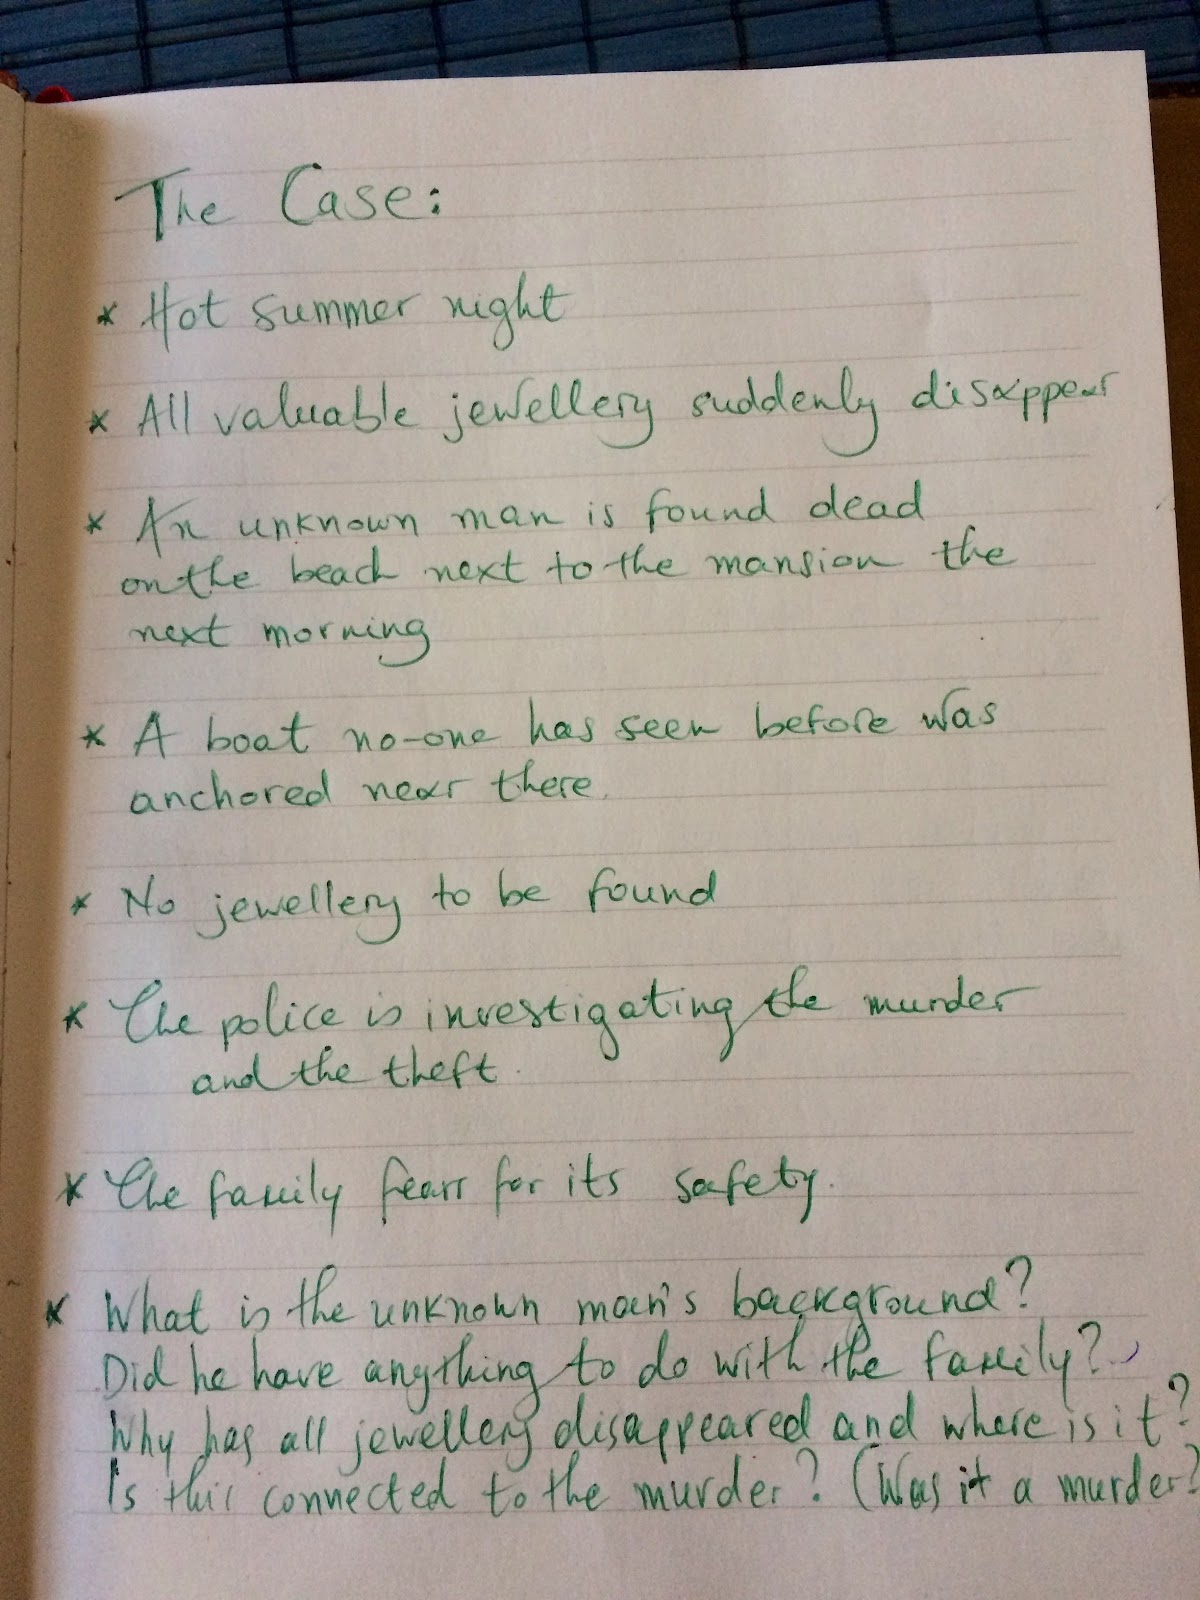 The Case:
* Hot summer night
* All valuable jewellery suddenly disappear
* An unknown man is found dead
on the beach next to the mansion the
next morning
* A boat no-one has seen before was
anchored near there.
* No jewellery to be found
* The police is investigating the murder
and the theft.
* The family fears for its safety.
* What is the unknown man's background?
Did he have anything to do with the family?
Why has all jewellery disappeared and where is it?
Is this connected to the murder? (Was it a murder?